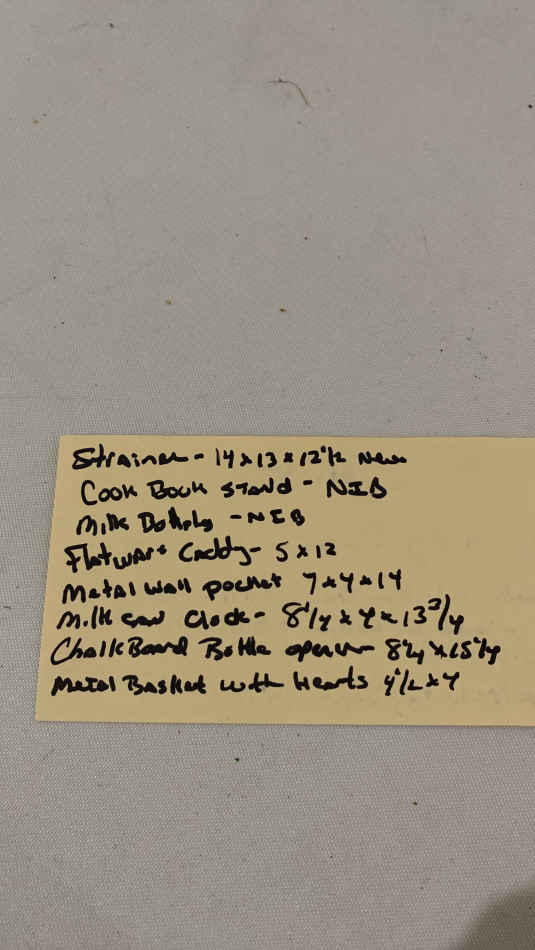 Strainer - 14 x 13 x 12 1/2 New
Cook Book Stand - NIB
Milk Bottles - NIB
Flatware Caddy - 5 x 12
Metal Wall pocket 7 x 4 x 14
Milk Can Clock - 8 1/4 x 4 x 13 3/4
Chalk Board Bottle opener
Metal Basket with Hearts 4 1/2 x 4